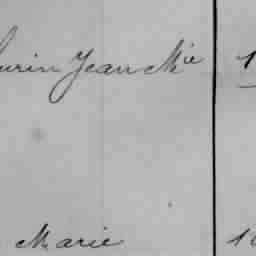 urin Jean Mie 1
Marie 10